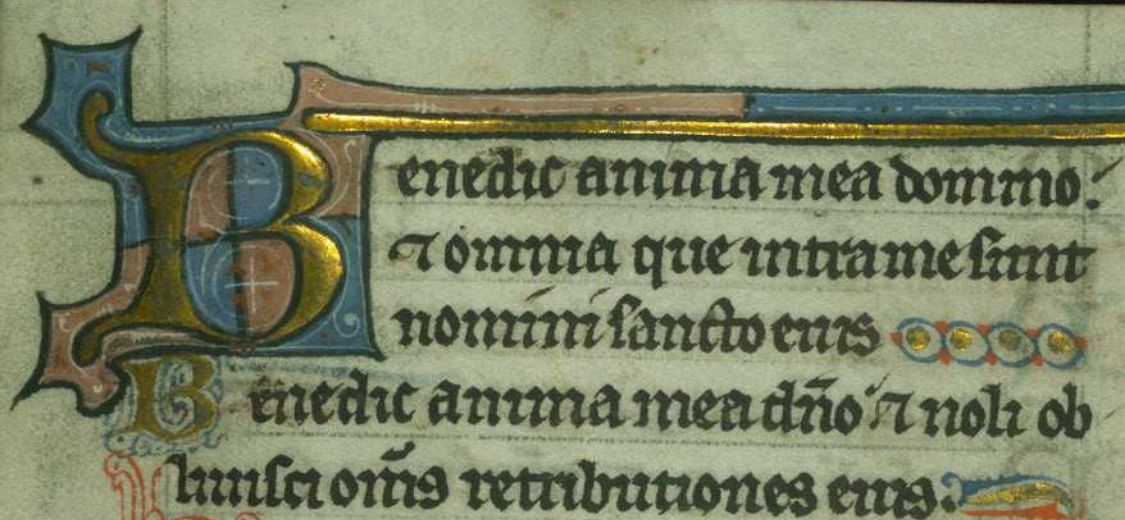 Benedic anima mea domino:
⁊ omnia que intra me sunt
nomini sancto eius
Benedic anima mea dño ⁊ noli ob
liuisci om̃s retributiones eius.